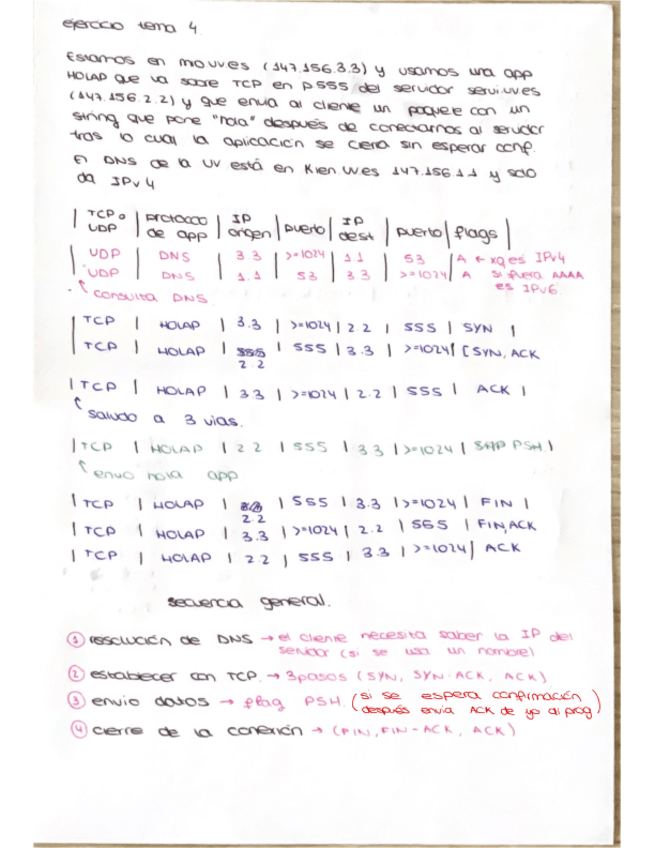 ejercicio tema 4.
Estamos en mouv.es (147.156.3.3) y usamos una app
HOLAP que va sobre TCP en p555 del servidor serv.uv.es
(147.156.2.2) y que envia al cliente un paquete con un
string que pone "hola" después de conectarnos al servidor
tras lo cual la aplicación se cierra sin esperar conf.
El DNS de la UV está en Kien.uv.es 147.156.1.1 y solo
da IPv4
| TCP o UDP | protocolo de app | IP origen | puerto | IP dest | puerto | flags |
| UDP | DNS | 3.3 | >=1024 | 1.1 | 53 | A ← xq es IPv4
| UDP | DNS | 1.1 | 53 | 3.3 | >=1024 | A si fuera AAAA
es IPv6
consulta DNS.
| TCP | HOLAP | 3.3 | >=1024 | 2.2 | 555 | SYN |
| TCP | HOLAP | 2.2 | 555 | 3.3 | >=1024 | [SYN, ACK
| TCP | HOLAP | 3.3 | >=1024 | 2.2 | 555 | ACK |
saludo a 3 vias.
| TCP | HOLAP | 2.2 | 555 | 3.3 | >=1024 | PSH. |
envio hola app
| TCP | HOLAP | 2.2 | 555 | 3.3 | >=1024 | FIN |
| TCP | HOLAP | 3.3 | >=1024 | 2.2 | 555 | FIN, ACK
| TCP | HOLAP | 2.2 | 555 | 3.3 | >=1024 | ACK
secuencia general.
① resolución de DNS → el cliente necesita saber la IP del
servidor (si se usa un nombre)
② establecer con TCP. → 3 pasos (SYN, SYN-ACK, ACK)
③ envio datos → flag PSH. (si se espera confirmación
después envia ACK de yo al prog)
④ cierre de la conexión → (FIN, FIN-ACK, ACK)